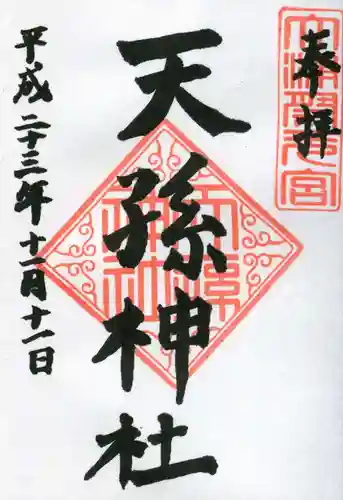 奉拝
天孫神社
平成二十三年十一月十一日
天孫神社